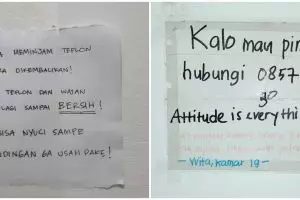 MEMINJAM TEFLON
DIKEMBALIKAN!
TEFLON DAN WAJAN
LAGI SAMPAI BERSIH!
NYUCI SAMPE
MENDINGAN GA USAH PAKE!
Kalo mau pin
hubungi 0857
go
Attitude is everythi
- Wita, kamar 19 -